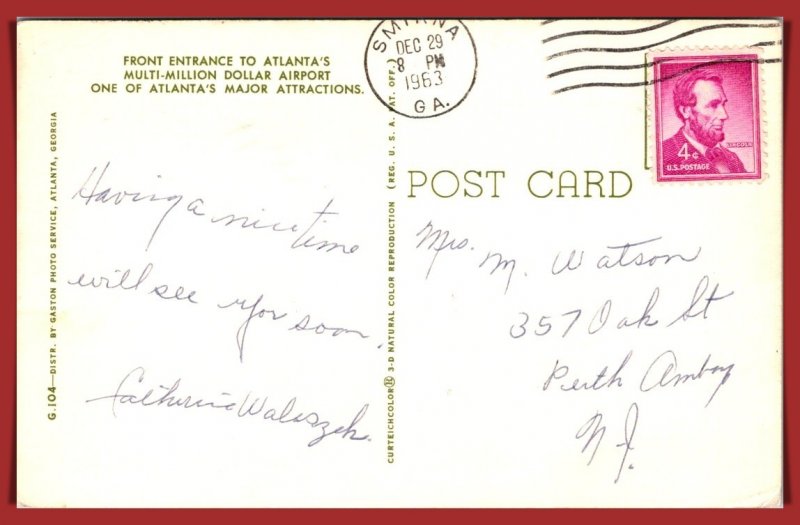 FRONT ENTRANCE TO ATLANTA'S
MULTI-MILLION DOLLAR AIRPORT
ONE OF ATLANTA'S MAJOR ATTRACTIONS.
SMYRNA
DEC 29
8 PM
1963
GA.
LINCOLN
4¢
U.S. POSTAGE
POST CARD
G.104—DISTR. BY GASTON PHOTO SERVICE, ATLANTA, GEORGIA
CURTEICHCOLOR® 3-D NATURAL COLOR REPRODUCTION (REG. U.S.A. PAT. OFF.)
Having a nice time
will see you soon.
Catherine Waloszek.
Mrs. M. Watson
357 Oak St
Perth Amboy
N J.